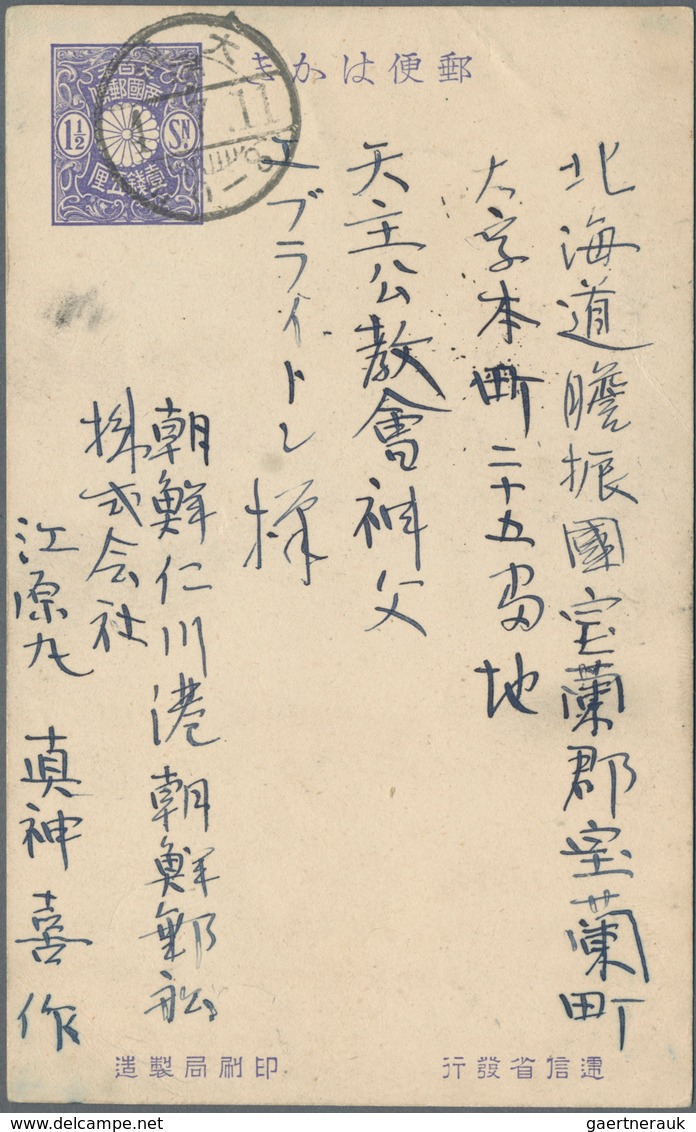 郵便はかき
大日本帝國郵便
1½ SN
壹錢五厘
11
北海道膽振國室蘭郡室蘭町
大字本町二十五番地
天主公教會神父
エブライトン様
朝鮮仁川港朝鮮郵船
株式会社
江原丸 真神喜作
遞信省發行
印刷局製造
gaertnerauk